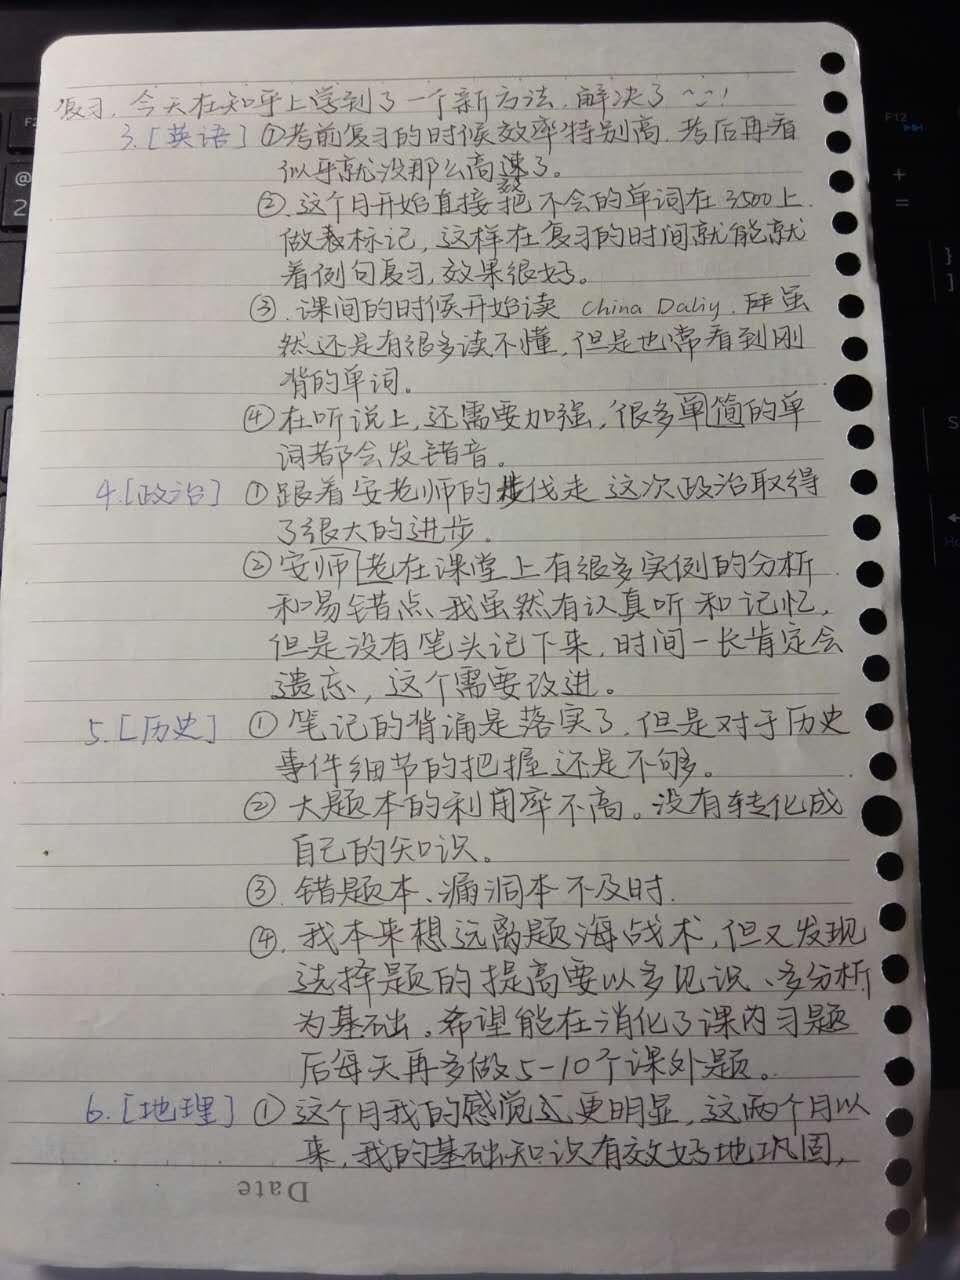 复习,今天在知乎上学到了一个新方法,解决了~~!
3.[英语] ①考前复习的时候效率特别高,考后再看
似乎就没那么高效了。
②.这个月开始直接把不会的单词在3500上
做标记,这样在复习的时间就能就
着例句复习,效果很好。
③.课间的时候开始读 China Daliy.虽
然还是有很多读不懂,但是也常看到刚
背的单词。
④在听说上,还需要加强,很多单简的单
词都会发错音。
4.[政治] ①跟着安老师的步伐走 这次政治取得
了很大的进步.
②安师老在课堂上有很多实例的分析
和易错点、我虽然有认真听和记忆,
但是没有笔头记下来,时间一长肯定会
遗忘,这个需要改进。
5.[历史] ①笔记的背诵是落实了,但是对于历史
事件细节的把握还是不够。
②大题本的利用率不高。没有转化成
自己的知识。
③.错题本、漏洞本不及时.
④.我本来想远离题海战术,但又发现
选择题的提高要以多见识、多分析
为基础,希望能在消化了课内习题
后每天再多做5-10个课外题。
6.[地理] ①这个月我的感觉还更明显,这两个月以
来,我的基础知识有效好地巩固,
Date
F12
+
=
@
2